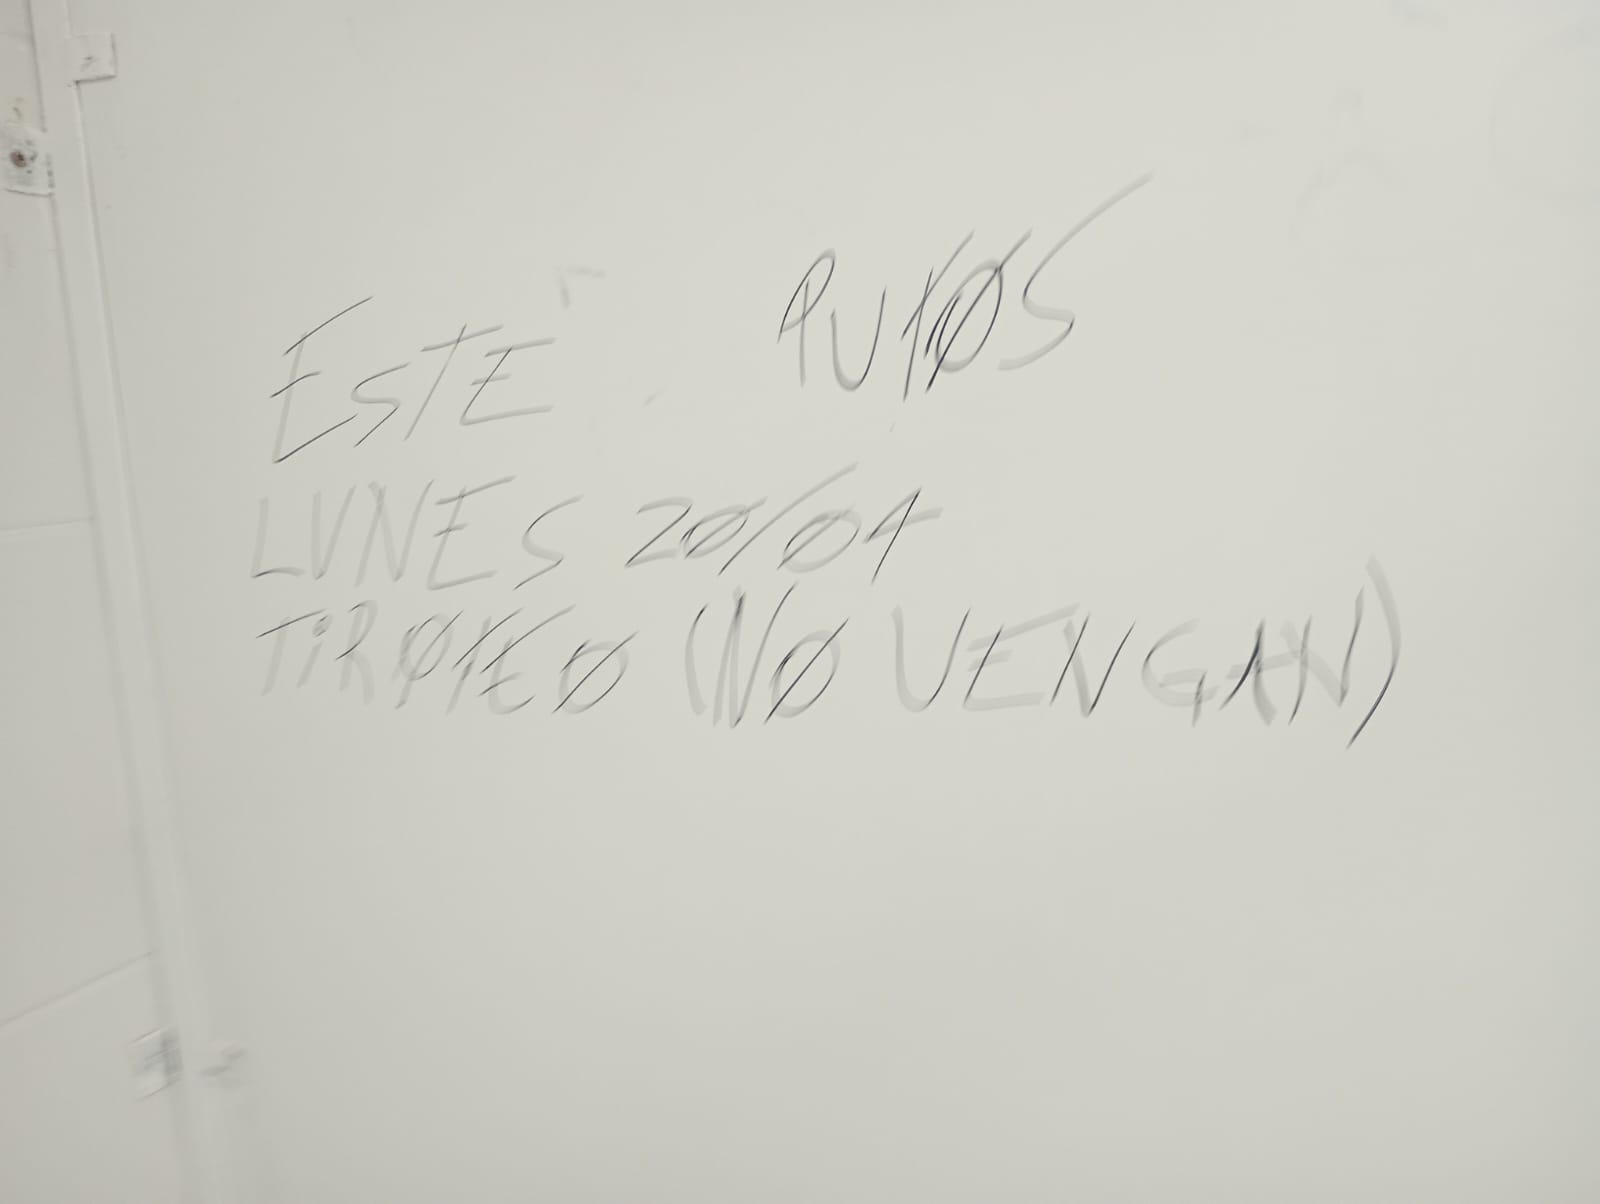 ESTE PUTOS
LUNES 20/04
TiROTEO (NO VENGAN)